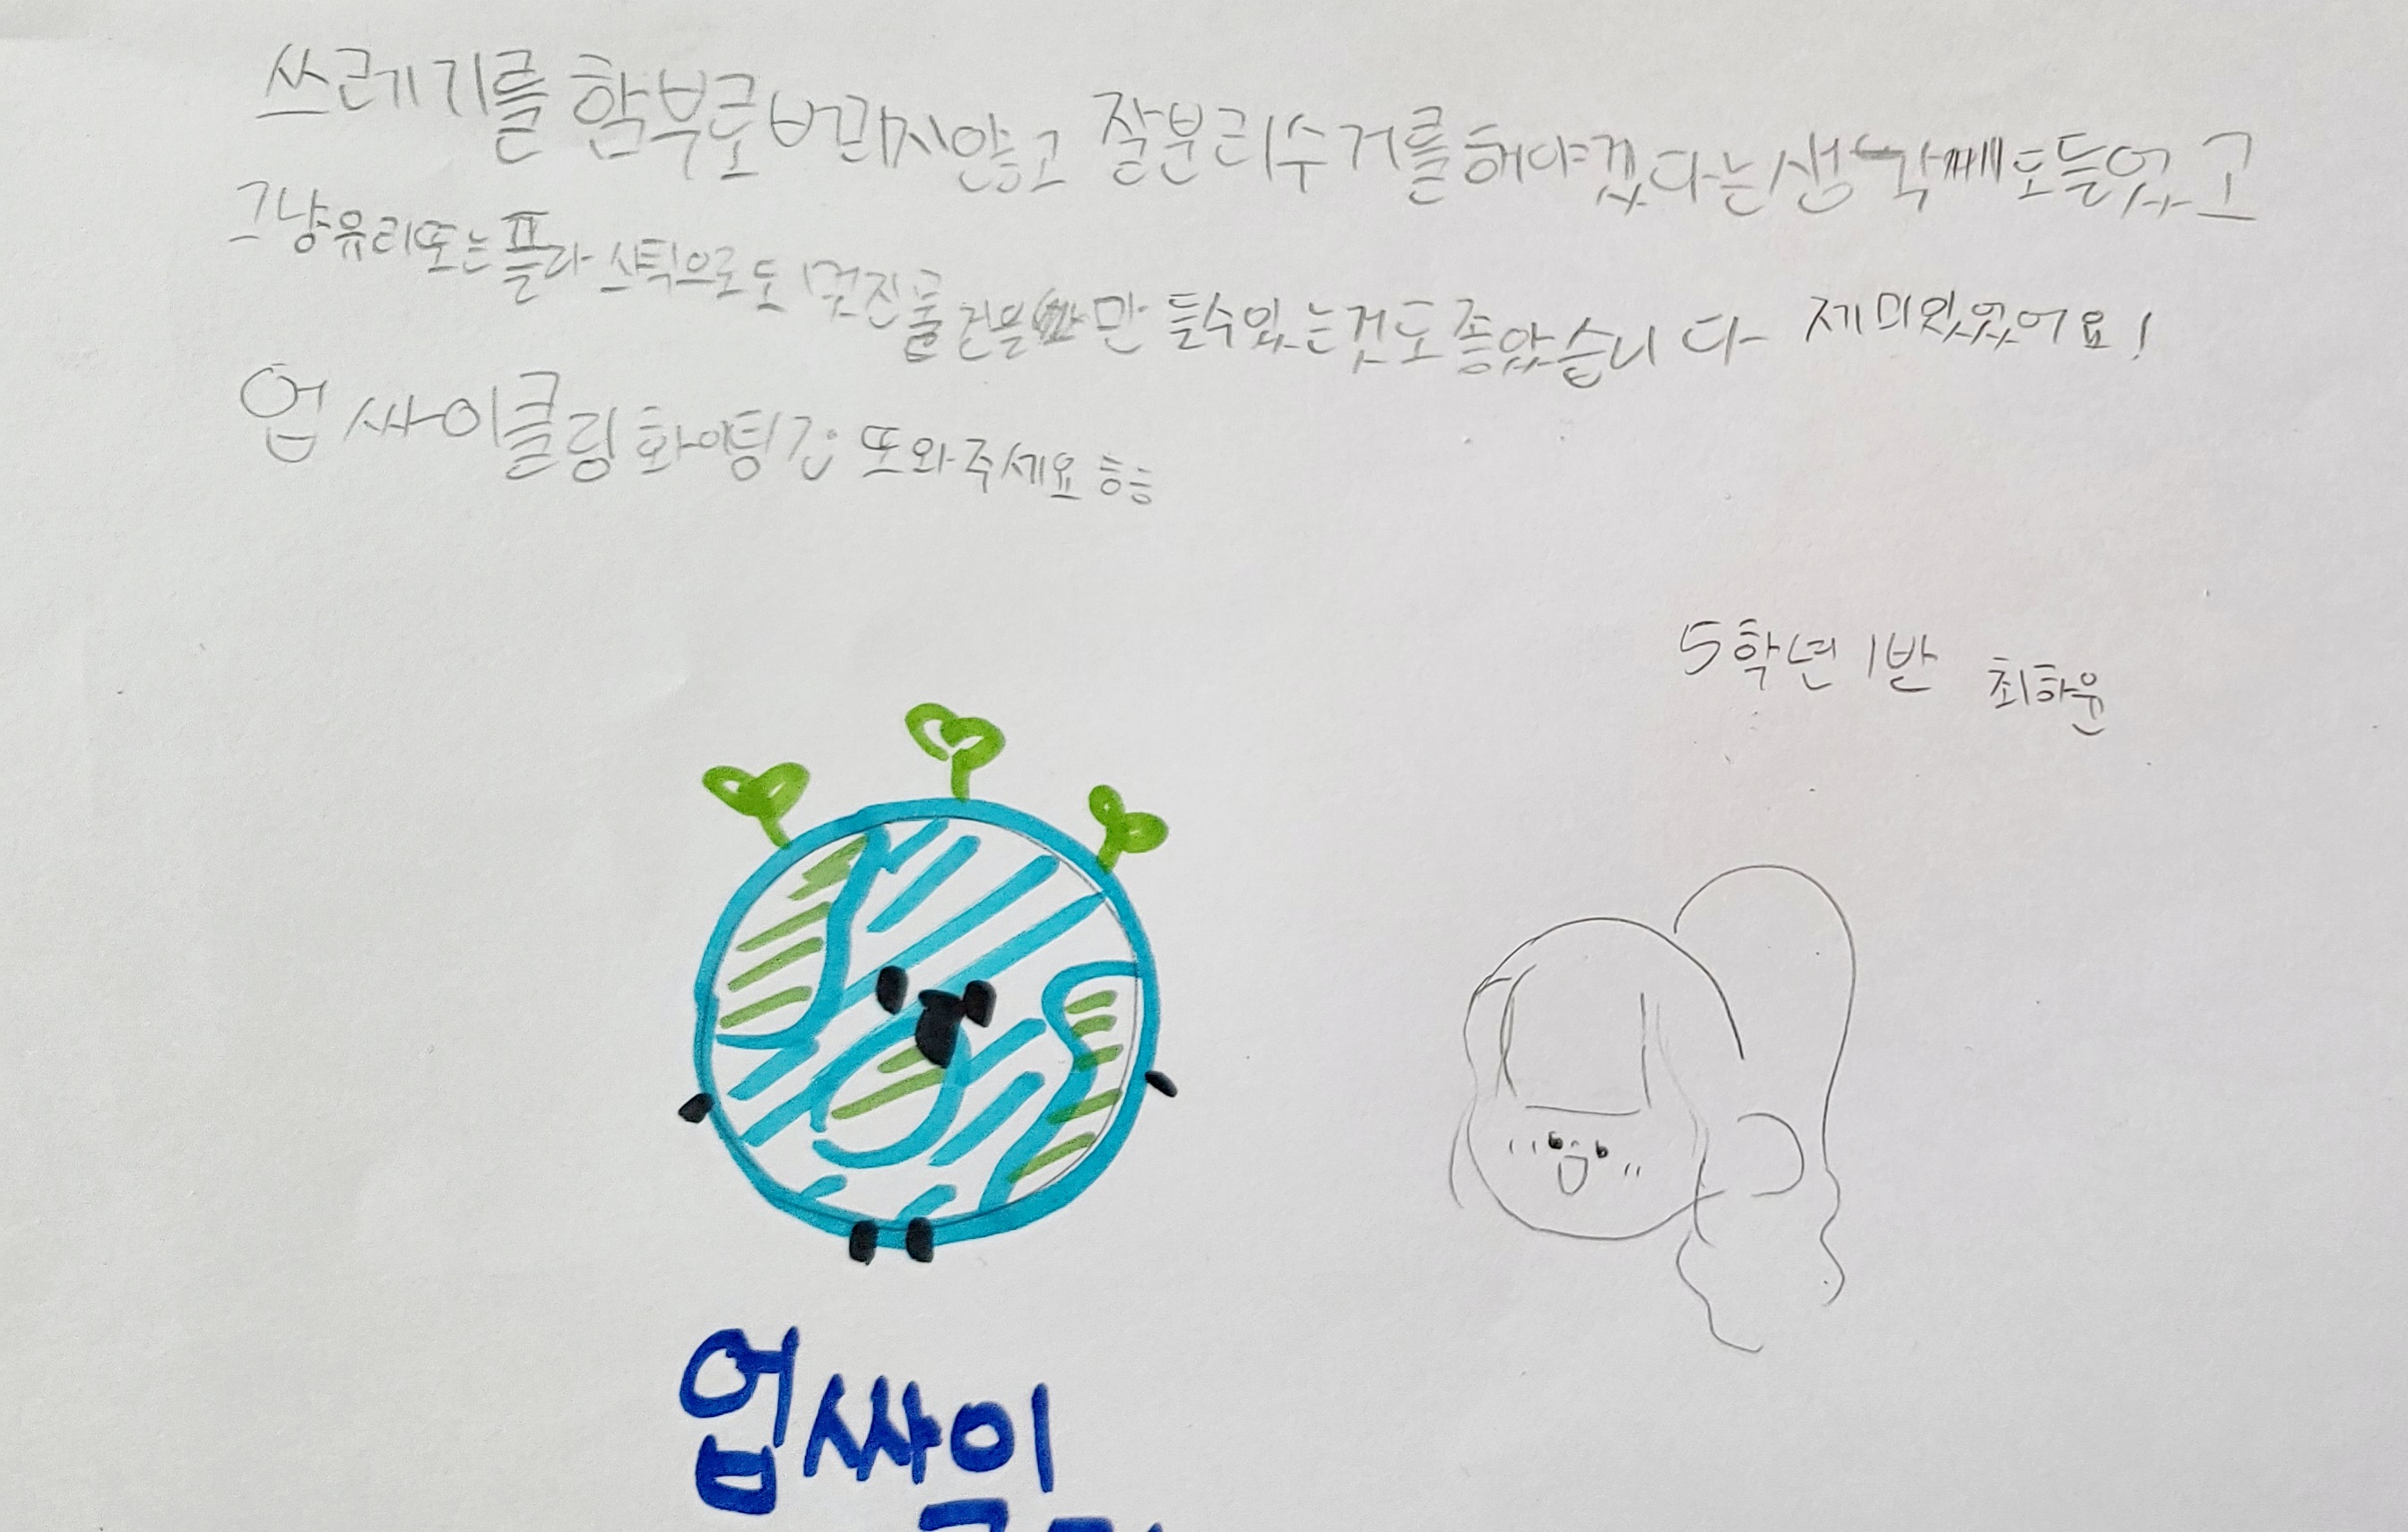 쓰레기를 함부로 버리지않고 잘분리수거를 해야겠다는 생각도들었고
그냥유리또는 플라스틱으로도 멋진물건을 만들수있는것도 좋았습니다 제미있었어요!
업 싸이클링 화이팅 또와주세요 ㅎㅎ
5학년 1반 최하윤
업싸이